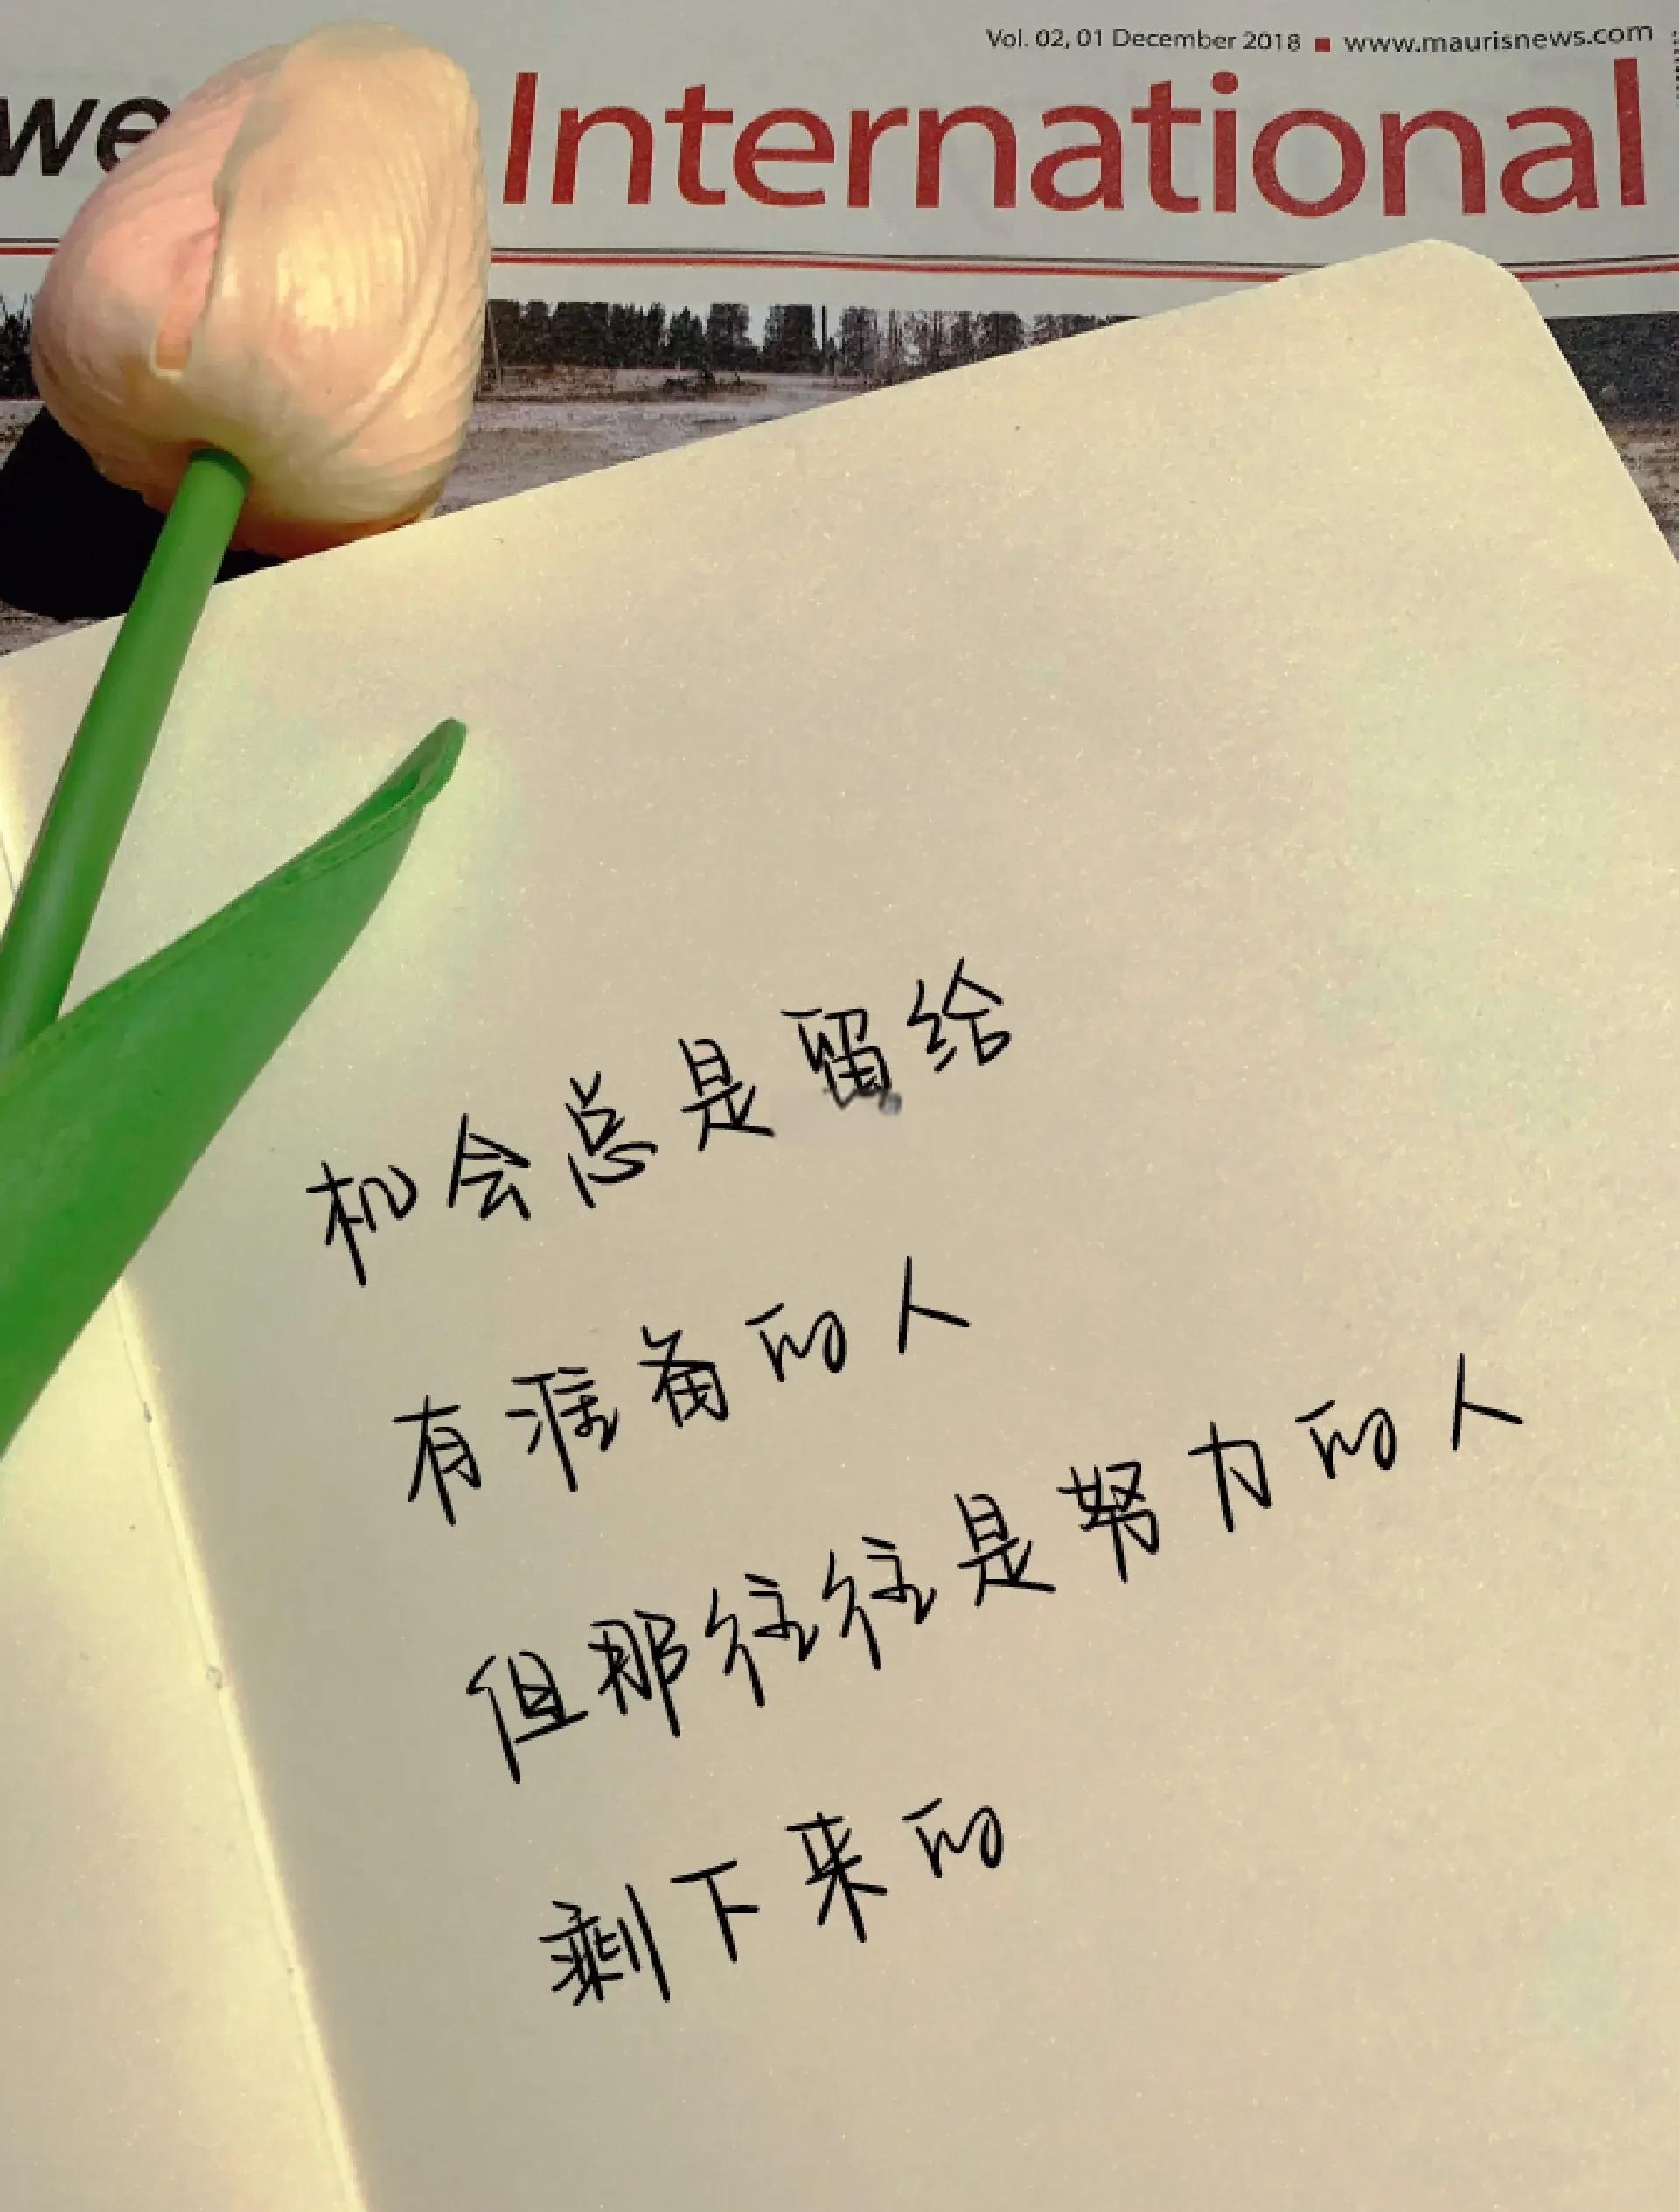 Vol. 02, 01 December 2018 ■ www.maurisnews.com
we International
机会总是留给
有准备的人
但那往往是努力的人
剩下来的